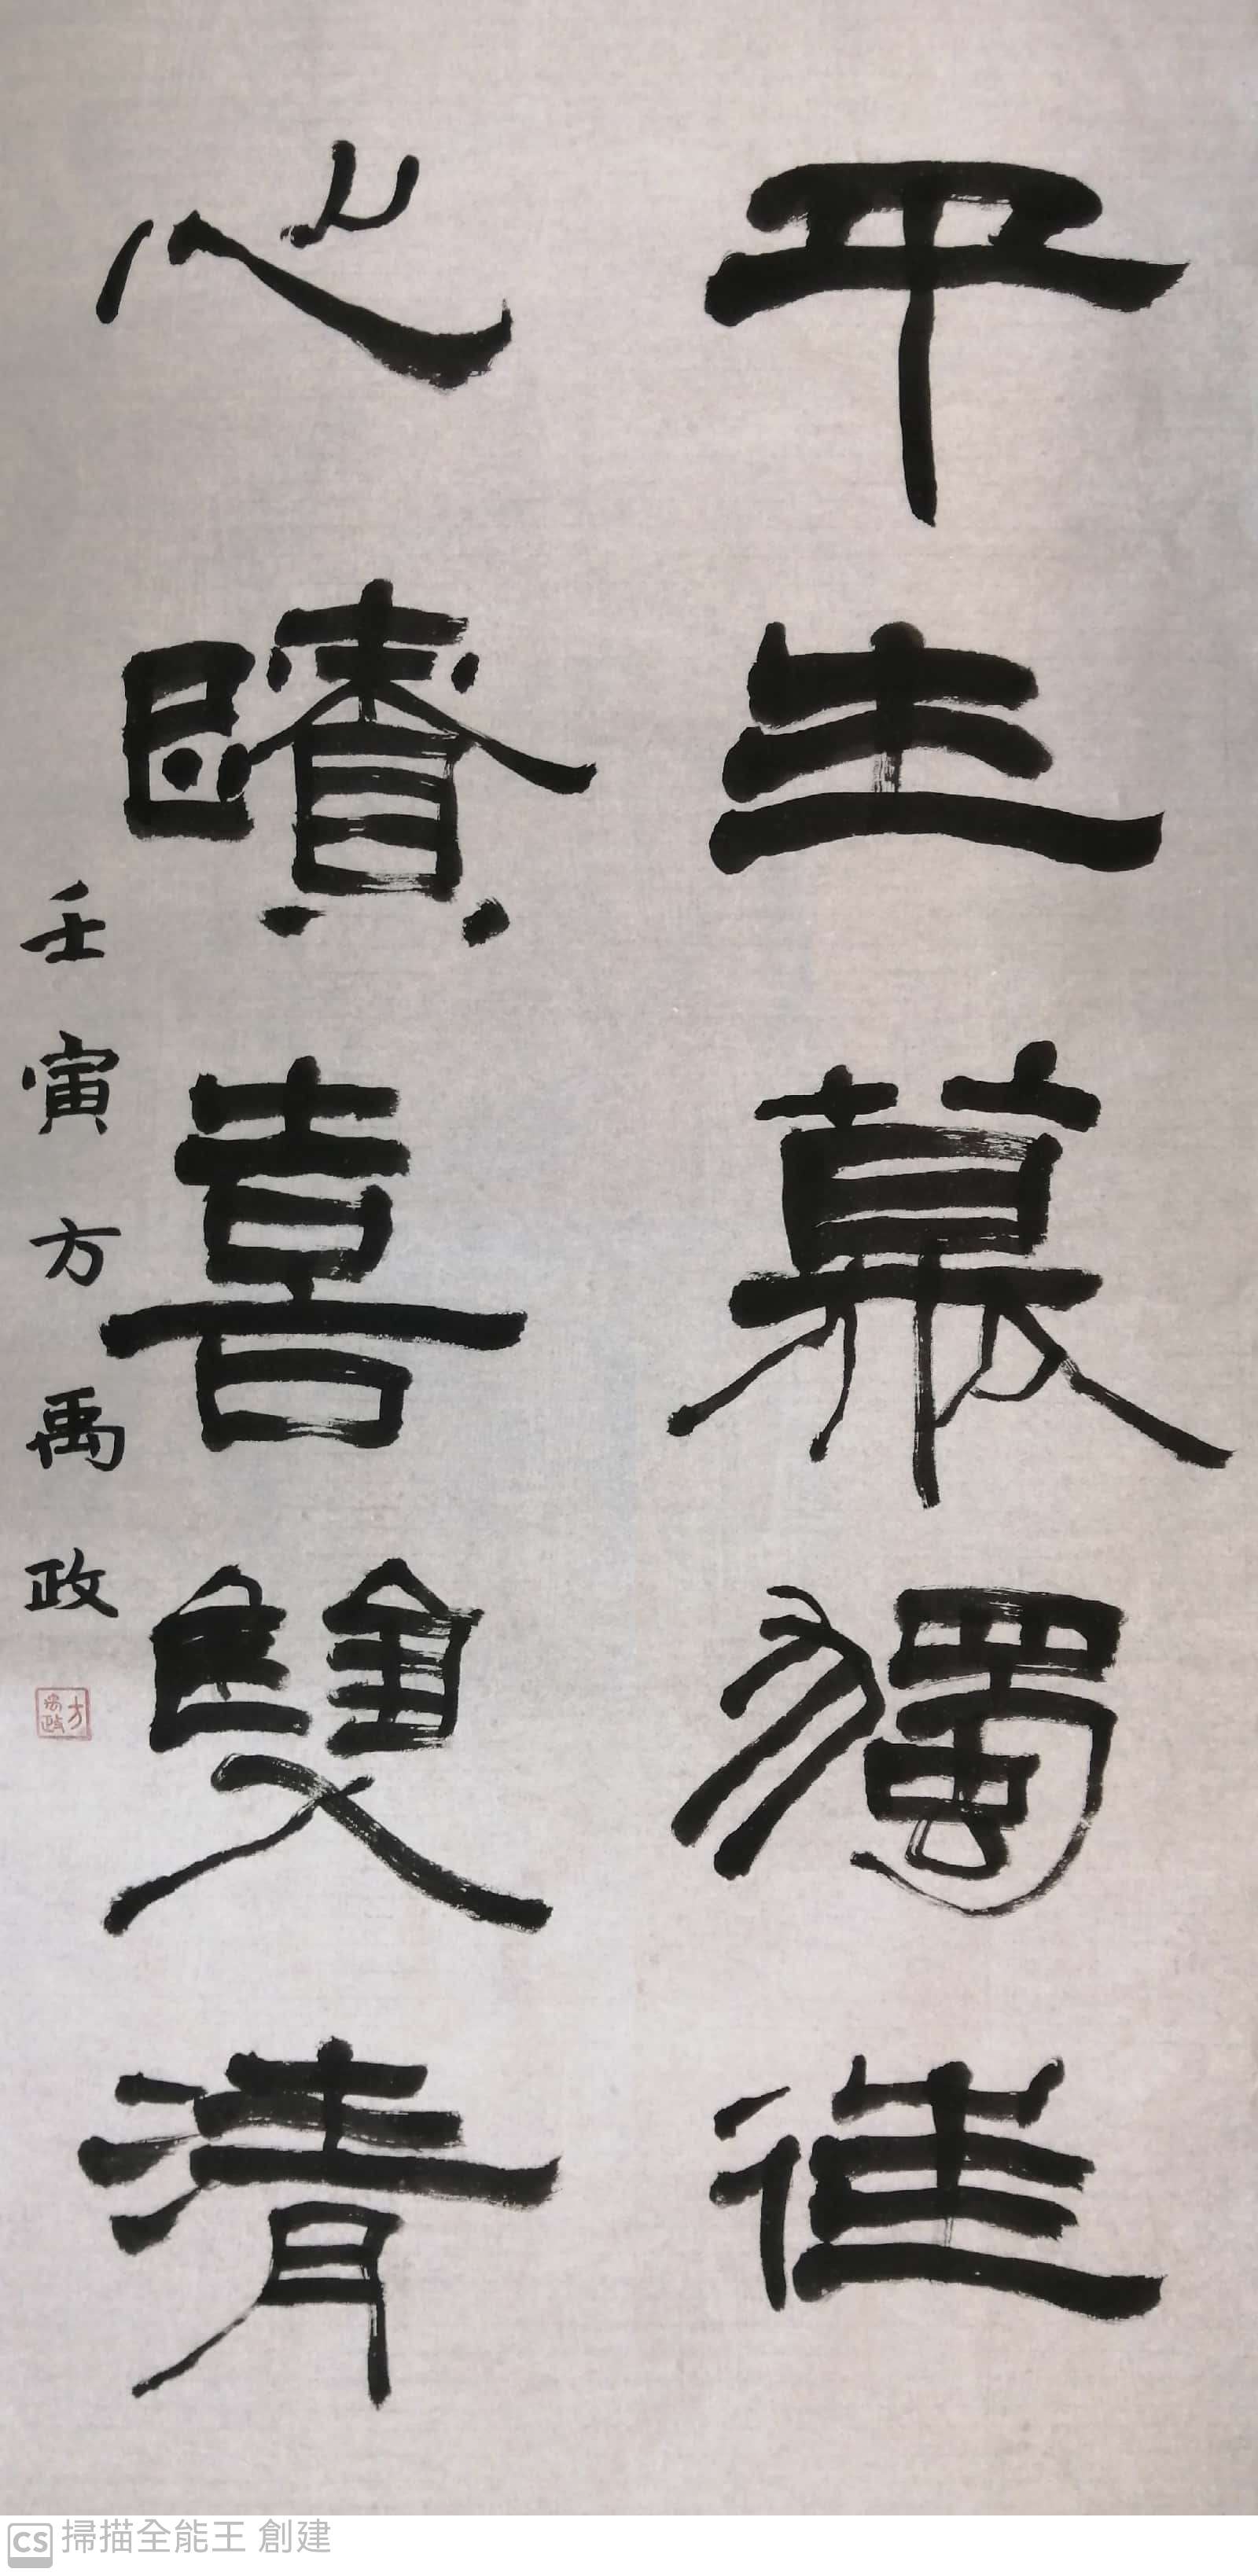 平生慕獨往
心賾喜雙清
壬寅方禹政
方禹政
CS 掃描全能王 創建